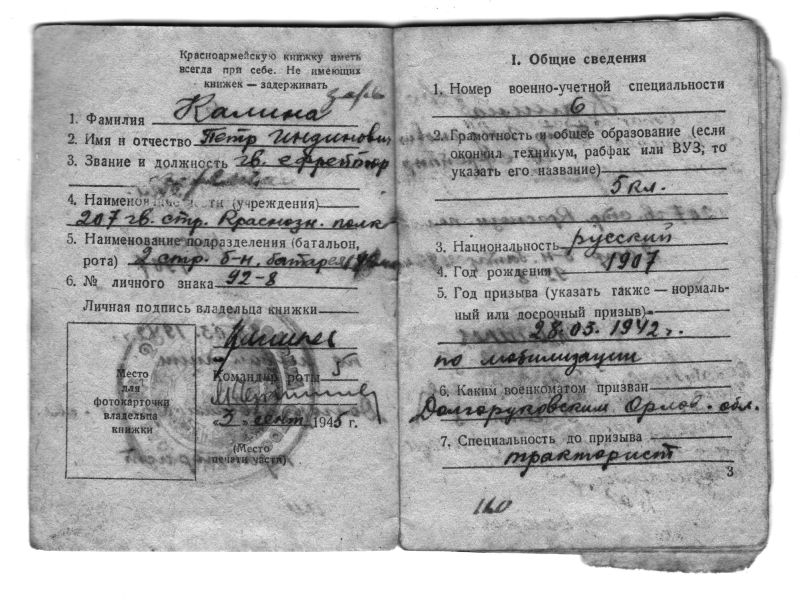 Красноармейскую книжку иметь
всегда при себе. Не имеющих
книжек — задерживать
1. Фамилия Калина
2. Имя и отчество Петр Индинович
3. Звание и должность гв. ефрейтор
4. Наименование части (учреждения)
207 гв. стр. Краснозн. полк
5. Наименование подразделения (батальон,
рота) 2 стр. б-н. батарея
6. № личного знака 92-8
Личная подпись владельца книжки
Место
для
фотокарточки
владельца
книжки
Командир роты
„3" сент 1945 г.
(Место
печати части)
I. Общие сведения
1. Номер военно-учетной специальности
6
2. Грамотность и общее образование (если
окончил техникум, рабфак или ВУЗ, то
указать его название)
5 кл.
3. Национальность русский
4. Год рождения 1907
5. Год призыва (указать также — нормаль-
ный или досрочный призыв)
28.05.1942 г.
по мобилизации
6. Каким военкоматом призван
Долгоруковским Орлов. обл.
7. Специальность до призыва
тракторист
3
160